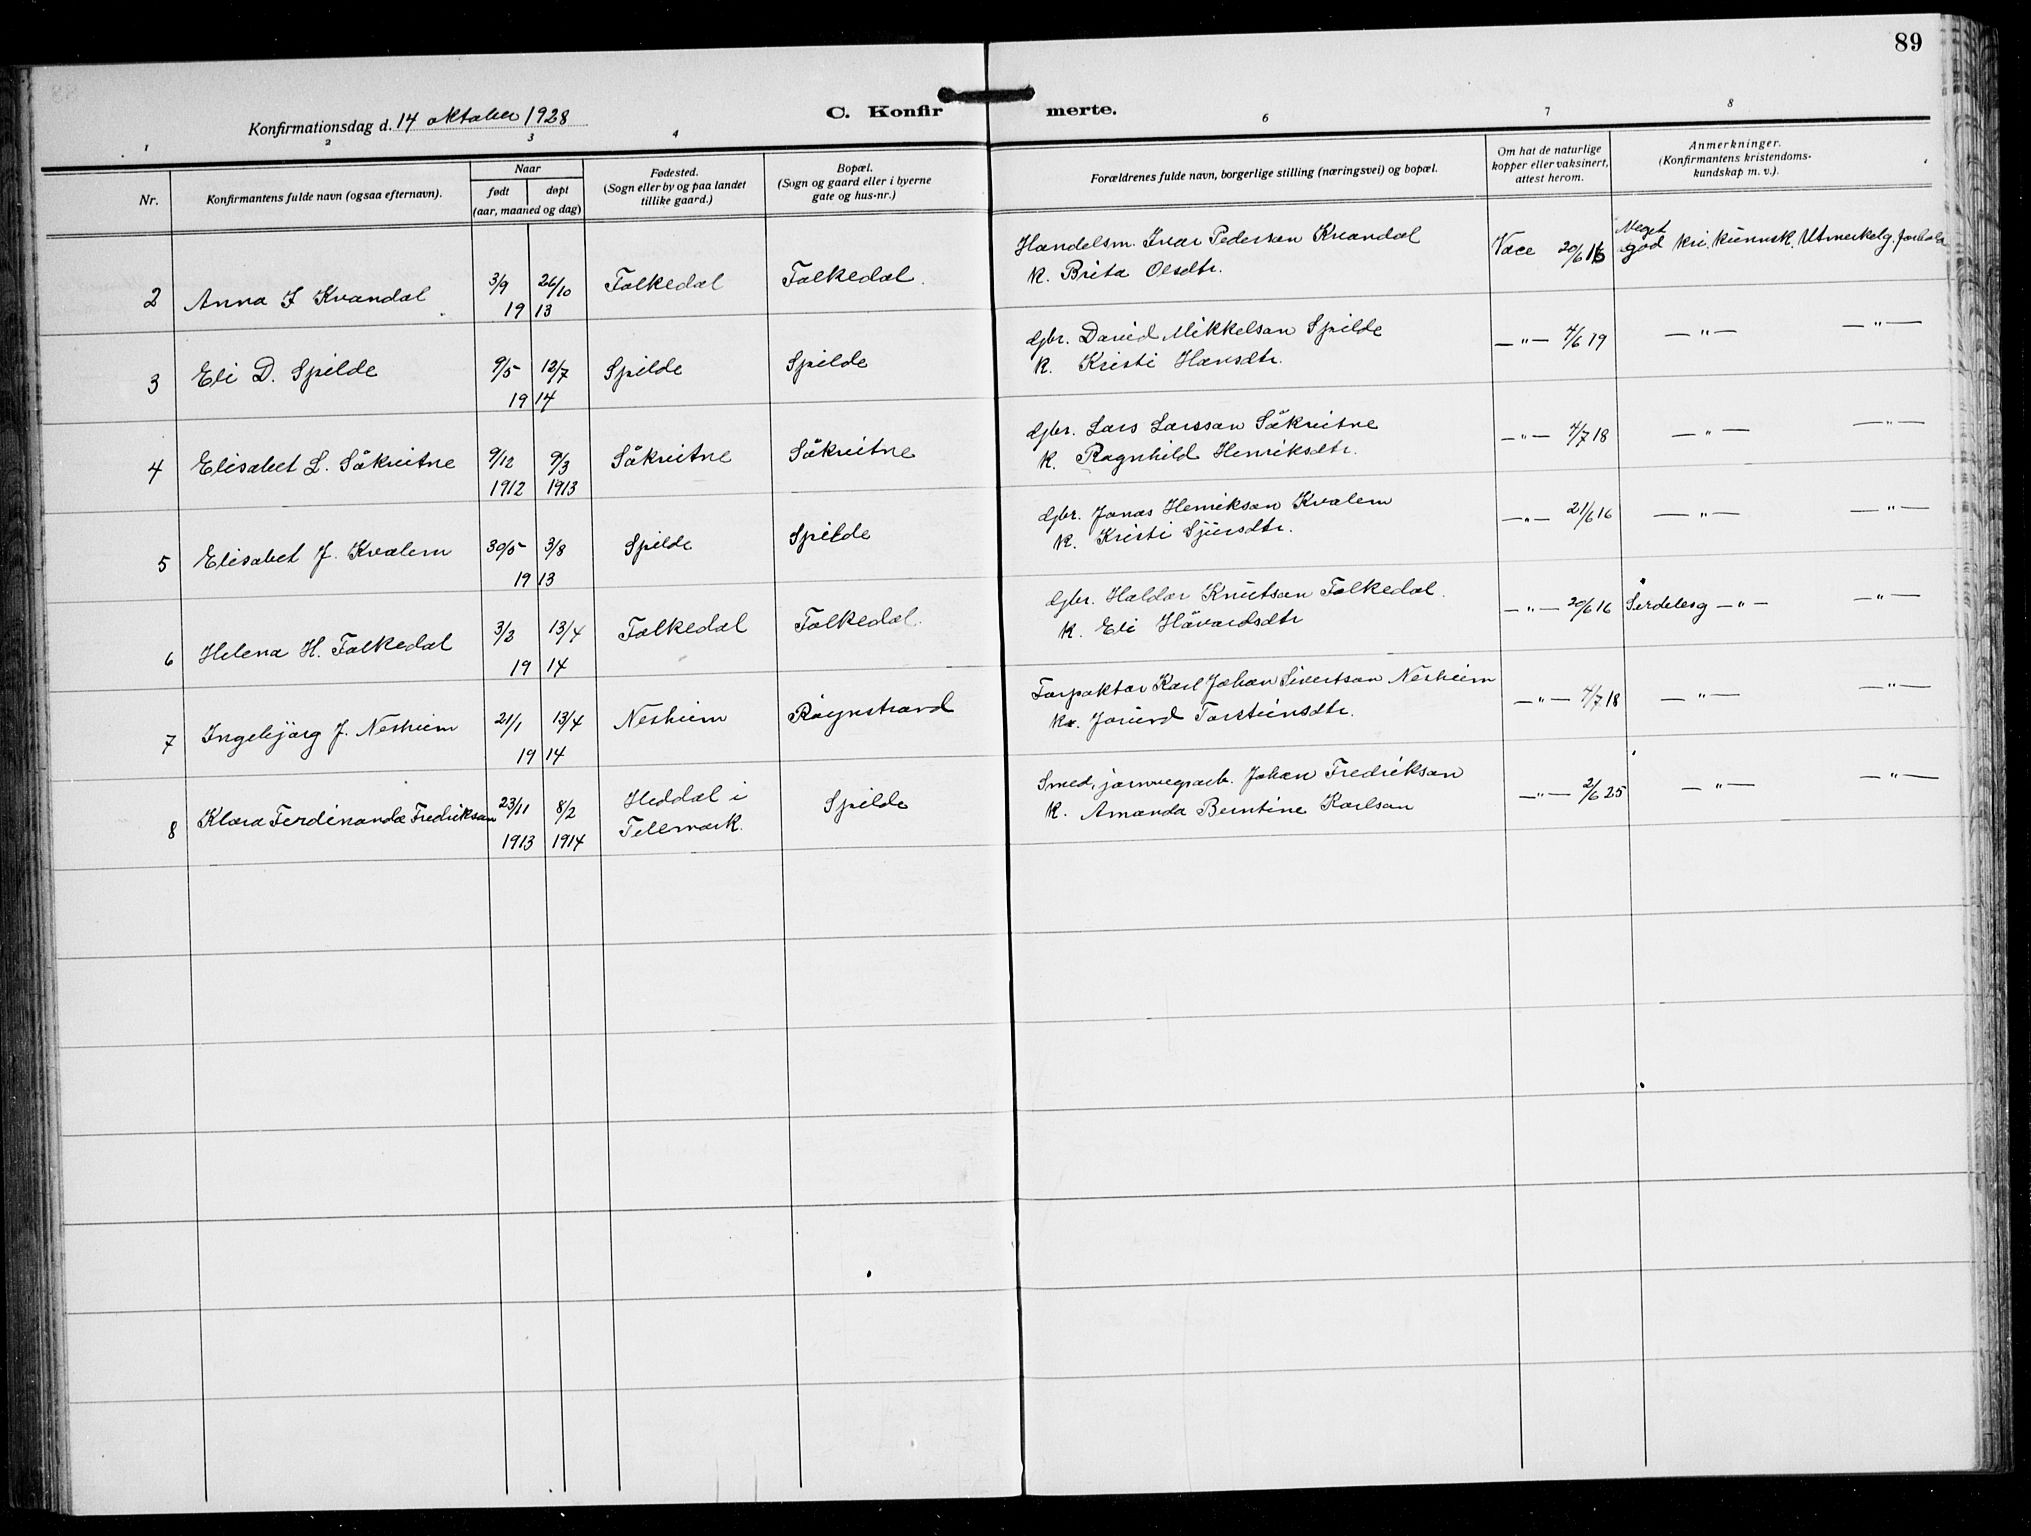 89
Konfirmationsdag d. 14 oktober 1928
C. Konfirmerte.
1 2 3 4 6 7 8
Nr.
Konfirmantens fulde navn (ogsaa efternavn).
Naar
født døpt
(aar, maaned og dag)
Fødested.
(Sogn eller by og paa landet
tillike gaard.)
Bopæl.
(Sogn og gaard eller i byerne
gate og hus-nr.)
Forældrenes fulde navn, borgerlige stilling (næringsvei) og bopæl.
Om hat de naturlige
kopper eller vaksinert,
attest herom.
Anmerkninger.
(Konfirmantens kristendoms-
kundskap m. v.).
Handelsm. Ivar Pedersen Kvandal
k. Brita Olsdtr.
Vacc 20/6 16
Meget
god kri. kunnsk. Utmerkelg. forhold
2 Anna I Kvandal 3/9 26/10 Folkedal Folkedal.
19 13
3 Eli D. Spilde 9/5 12/7 Spilde Spilde
19 14
gbr. David Mikkelson Spilde
k. Kristi Hansdtr.
—"— 4/6 19 —"— —"—
4 Elisabet L. Såkvitne 9/12 9/3 Såkvitne Såkvitne
1912 1913
gbr. Lars Larsson Såkvitne
k. Ragnhild Henriksdtr.
—"— 4/7 18 —"— —"—
5 Elisabet J. Kvalem 30/5 3/8 Spilde Spilde
19 13
gbr. Jonas Henrikson Kvalem
k. Kristi Sjursdtr.
—"— 21/6 16 —"— —"—
6 Helena H. Folkedal 3/2 13/4 Folkedal Folkedal.
19 14
gbr. Haldor Knutson Folkedal.
k. Eli Håvardsdtr
—"— 20/6 16 Serdelesg —"— —"—
7 Ingebjørg J. Nesheim 21/1 13/4 Nesheim Røynstrand
19 14
Torpaktar Karl Johan Sivertson Nesheim
k. Jorund Torsteinsdtr.
—"— 4/7 18 —"— —"—
8 Klara Ferdinanda Fredrikson 23/11 8/2 Heddal i Spilde
1913 1914 Telemark.
Smed, jarnvegsarb. Johan Fredrikson
k. Amanda Berntine Karlson
—"— 2/6 25 —"— —"—